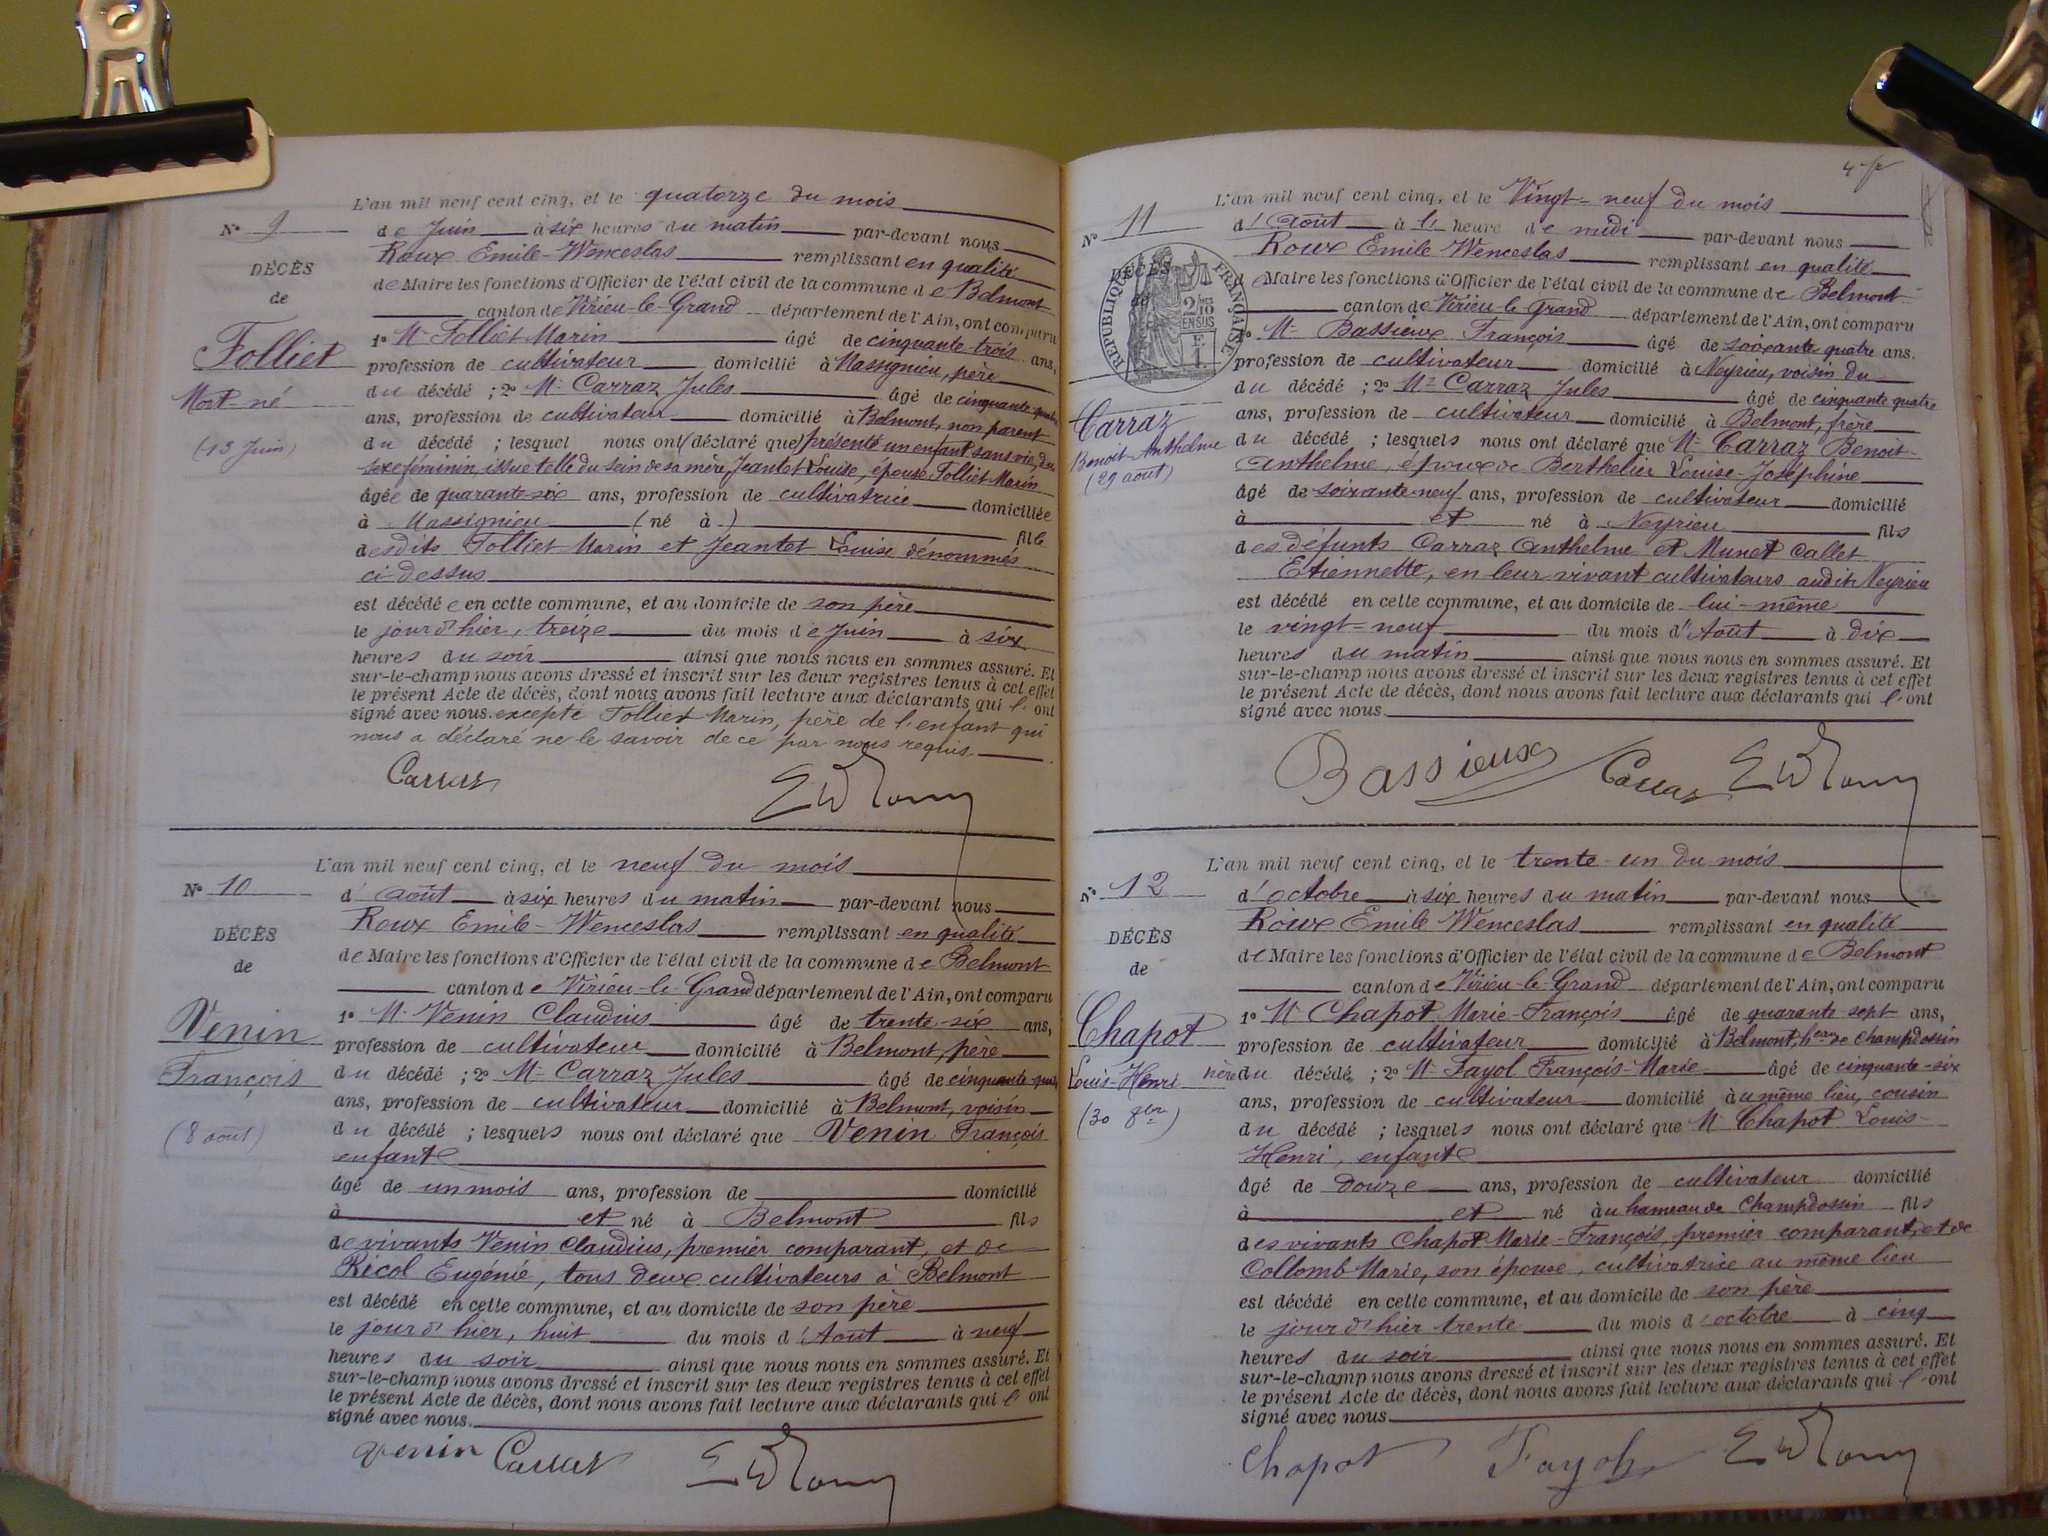 L'an mil neuf cent cinq, et le quatorze du mois
N° 9
de Juin à six heures du matin par-devant nous
Roux Emile-Wenceslas remplissant en qualité
DÉCÈS
de Maire les fonctions d'Officier de l'état civil de la commune de Belmont
de
canton de Virieu-le-Grand département de l'Ain, ont comparu
Folliet
1° M. Folliet Marin âgé de cinquante-trois ans,
profession de cultivateur domicilié à Massignieu, père
Mort-né
du décédé ; 2° M. Carraz Jules âgé de cinquante quatre
ans, profession de cultivateur domicilié à Belmont, non parent
(13 Juin)
du décédé ; lesquel nous ont (déclaré que) présenté un enfant sans vie, du
sexe féminin, issue telle du sein de sa mère, Jeantet Louise, épouse Folliet Marin
âgée de quarante-six ans, profession de cultivatrice domiciliée
à Massignieu (né à ) fille
desdits Folliet Marin et Jeantet Louise dénommés
ci-dessus
est décédée en cette commune, et au domicile de son père
le jour d'hier, treize du mois de Juin à six
heures du soir ainsi que nous nous en sommes assuré. Et
sur-le-champ nous avons dressé et inscrit sur les deux registres tenus à cet effet
le présent Acte de décès, dont nous avons fait lecture aux déclarants qui l'ont
signé avec nous. excepté Folliet Marin, père de l'enfant qui
nous a déclaré ne le savoir de ce par nous requis.
Carraz
L'an mil neuf cent cinq, et le neuf du mois
N° 10
d'août à six heures du matin par-devant nous
Roux Emile-Wenceslas remplissant en qualité
DÉCÈS
de Maire les fonctions d'Officier de l'état civil de la commune de Belmont
de
canton de Virieu-le-Grand département de l'Ain, ont comparu
Venin
1° M. Venin Claudius âgé de trente-six ans,
profession de cultivateur domicilié à Belmont, père
François
du décédé ; 2° M. Carraz Jules âgé de cinquante-quatre
ans, profession de cultivateur domicilié à Belmont, voisin
(8 août)
du décédé ; lesquels nous ont déclaré que Venin François
enfant
âgé de un mois ans, profession de domicilié
à et né à Belmont fils
de vivants Venin Claudius, premier comparant, et de
Ricol Eugénie, tous deux cultivateurs à Belmont
est décédé en cette commune, et au domicile de son père
le jour d'hier, huit du mois d'Août à neuf
heures du soir ainsi que nous nous en sommes assuré. Et
sur-le-champ nous avons dressé et inscrit sur les deux registres tenus à cet effet
le présent Acte de décès, dont nous avons fait lecture aux déclarants qui l'ont
signé avec nous.
Venin Carraz
L'an mil neuf cent cinq, et le Vingt-neuf du mois
N° 11
d'août à heure de midi par-devant nous
Roux Emile-Wenceslas remplissant en qualité
DÉCÈS
RÉPUBLIQUE FRANÇAISE
de Maire les fonctions d'Officier de l'état civil de la commune de Belmont
canton de Virieu le Grand département de l'Ain, ont comparu
1° M. Bassieux François âgé de soixante quatre ans.
profession de cultivateur domicilié à Neyrieu, voisin du
du décédé ; 2° M. Carraz Jules âgé de cinquante quatre
Carraz
ans, profession de cultivateur domicilié à Belmont, frère
Benoit Anthelme
du décédé ; lesquels nous ont déclaré que M. Carraz Benoit-
(29 août)
Anthelme, époux de Berthelier Louise-Joséphine
âgé de soixante-neuf ans, profession de cultivateur domicilié
à et né à Neyrieu fils
des défunts Carraz Anthelme et Munet Callet
Etiennette, en leur vivant cultivateurs audit Neyrieu
est décédé en cette commune, et au domicile de lui-même
le vingt-neuf du mois d'Août à dix
heures du matin ainsi que nous nous en sommes assuré. Et
sur-le-champ nous avons dressé et inscrit sur les deux registres tenus à cet effet
le présent Acte de décès, dont nous avons fait lecture aux déclarants qui l'ont
signé avec nous
Bassieux Carraz
L'an mil neuf cent cinq, et le trente-un du mois
N° 12
d'octobre à six heures du matin par-devant nous
Roux Emile Wenceslas remplissant en qualité
DÉCÈS
de Maire les fonctions d'Officier de l'état civil de la commune de Belmont
de
canton de Virieu-le-Grand département de l'Ain, ont comparu
Chapot
1° M. Chapot Marie-François âgé de quarante sept ans,
profession de cultivateur domicilié à Belmont, heau de Champdossin
Louis-Henri
père du décédé ; 2° M. Fayol François-Marie âgé de cinquante-six
ans, profession de cultivateur domicilié au même lieu, cousin
(30 8bre)
du décédé ; lesquels nous ont déclaré que M. Chapot Louis-
Henri, enfant
âgé de douze ans, profession de cultivateur domicilié
à et né au hameau de Champdossin fils
des vivants Chapot Marie-François, premier comparant, et de
Collomb Marie, son épouse, cultivatrice au même lieu
est décédé en cette commune, et au domicile de son père
le jour d'hier trente du mois d'octobre à cinq
heures du soir ainsi que nous nous en sommes assuré. Et
sur-le-champ nous avons dressé et inscrit sur les deux registres tenus à cet effet
le présent Acte de décès, dont nous avons fait lecture aux déclarants qui l'ont
signé avec nous
Chapot Fayol